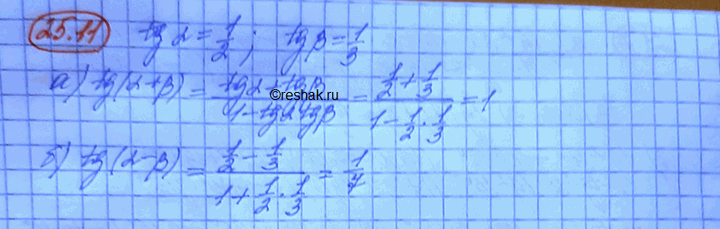 25.11 tg α = 1/2; tg β = 1/3
а) tg(α+β) = (tg α + tg β)/(1 − tg α tg β) = (1/2 + 1/3)/(1 − 1/2 · 1/3) = 1
©reshak.ru
б) tg(α−β) = (1/2 − 1/3)/(1 + 1/2 · 1/3) = 1/7